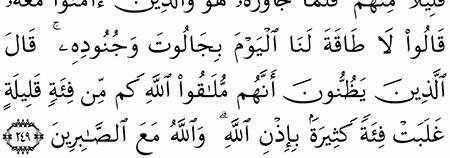 قَلِيلًا مِّنْهُمْ فَلَمَّا جَاوَزَهُۥ هُوَ وَٱلَّذِينَ ءَامَنُوا۟ مَعَهُۥ
قَالُوا۟ لَا طَاقَةَ لَنَا ٱلْيَوْمَ بِجَالُوتَ وَجُنُودِهِۦ ۚ قَالَ
ٱلَّذِينَ يَظُنُّونَ أَنَّهُم مُّلَـٰقُوا۟ ٱللَّهِ كَم مِّن فِئَةٍ قَلِيلَةٍ
غَلَبَتْ فِئَةً كَثِيرَةًۢ بِإِذْنِ ٱللَّهِ ۗ وَٱللَّهُ مَعَ ٱلصَّـٰبِرِينَ ٢٤٩